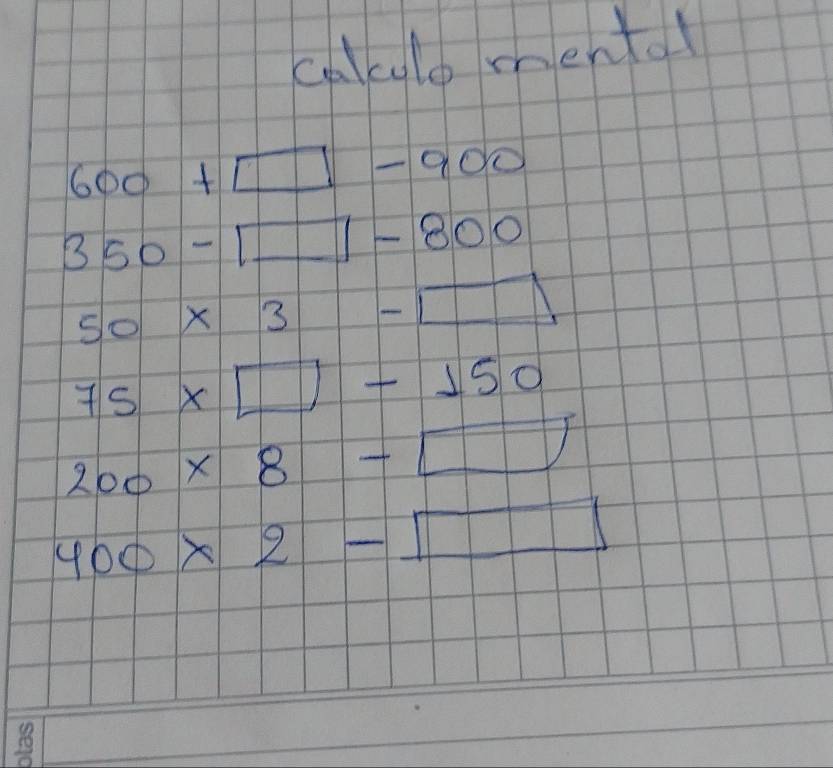 calculo mental
600 + □ - 900
350 - □ - 800
50 × 3 - □
75 × □ - 150
200 × 8 - □
400 × 2 - □